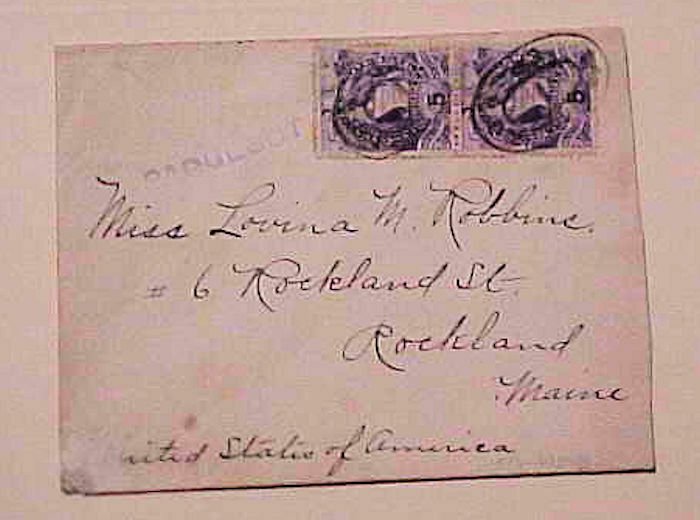 5 5
Miss Lovina M. Robbins.
# 6 Rockland St.
Rockland
Maine
United States of America